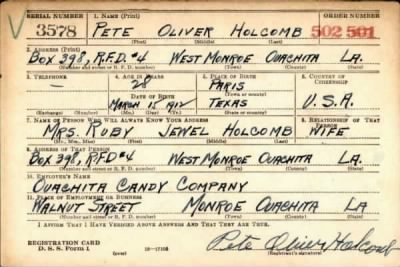 SERIAL NUMBER 1. NAME (Print) ORDER NUMBER
V 3578 PETE OLIVER HOLCOMB 502 501
(First) (Middle) (Last)
2. ADDRESS (Print)
BOX 398, R.F.D. #4 WEST MONROE OUACHITA LA.
(Number and street or R. F. D. number) (Town) (County) (State)
3. TELEPHONE 4. AGE IN YEARS 5. PLACE OF BIRTH 6. COUNTRY OF CITIZENSHIP
— 28 PARIS
DATE OF BIRTH (Town or county)
MARCH 15 1912 TEXAS U.S.A.
(Exchange) (Number) (Mo.) (Day) (Yr.) (State or country)
7. NAME OF PERSON WHO WILL ALWAYS KNOW YOUR ADDRESS 8. RELATIONSHIP OF THAT PERSON
MRS. RUBY JEWEL HOLCOMB WIFE
(Mr., Mrs., Miss) (First) (Middle) (Last)
9. ADDRESS OF THAT PERSON
BOX 398, R.F.D #4 WEST MONROE OUACHITA LA.
(Number and street or R. F. D. number) (Town) (County) (State)
10. EMPLOYER'S NAME
OUACHITA CANDY COMPANY
11. PLACE OF EMPLOYMENT OR BUSINESS
WALNUT STREET MONROE OUACHITA LA
(Number and street or R. F. D. number) (Town) (County) (State)
I AFFIRM THAT I HAVE VERIFIED ABOVE ANSWERS AND THAT THEY ARE TRUE.
REGISTRATION CARD
D. S. S. Form 1 (over) 16—17105 Pete Oliver Holcomb
(Registrant's signature)